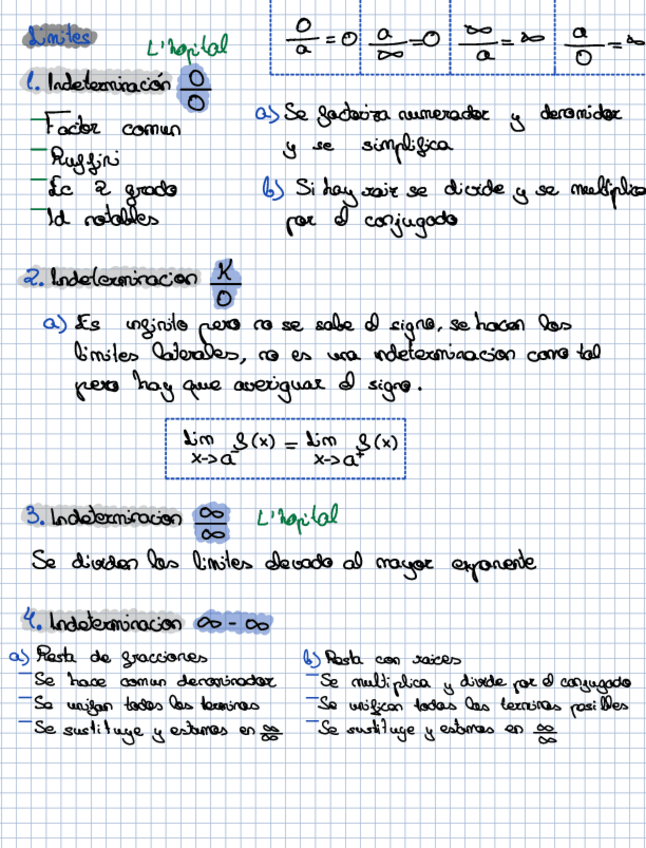 Limites
L'hopital
0/a = 0 a/∞ = 0 ∞/a = ∞ a/0 = ∞
1. Indeterminación 0/0
- Factor comun
- Ruffini
- Ec 2 grado
- Id notables
a) Se factoriza numerador y denomidor
y se simplifica
b) Si hay raiz se divide y se multiplica
por el conjugado
2. Indeterminacion K/0
a) Es infinito pero no se sabe el signo, se hacen los
limites laterales, no es una indeterminacion como tal
pero hay que averiguar el signo.
lim x->a⁻ f(x) = lim x->a⁺ f(x)
3. Indeterminacion ∞/∞ L'hopital
Se dividen los limites elevado al mayor exponente
4. Indeterminacion ∞ - ∞
a) Resta de fracciones
- Se hace comun denominador
- Se unifan todos los terminos
- Se sustituye y estamos en ∞/∞
b) Resta con raices
- Se multiplica y divide por el conjugado
- Se unifican todos los terminos posibles
- Se sustituye y estamos en ∞/∞